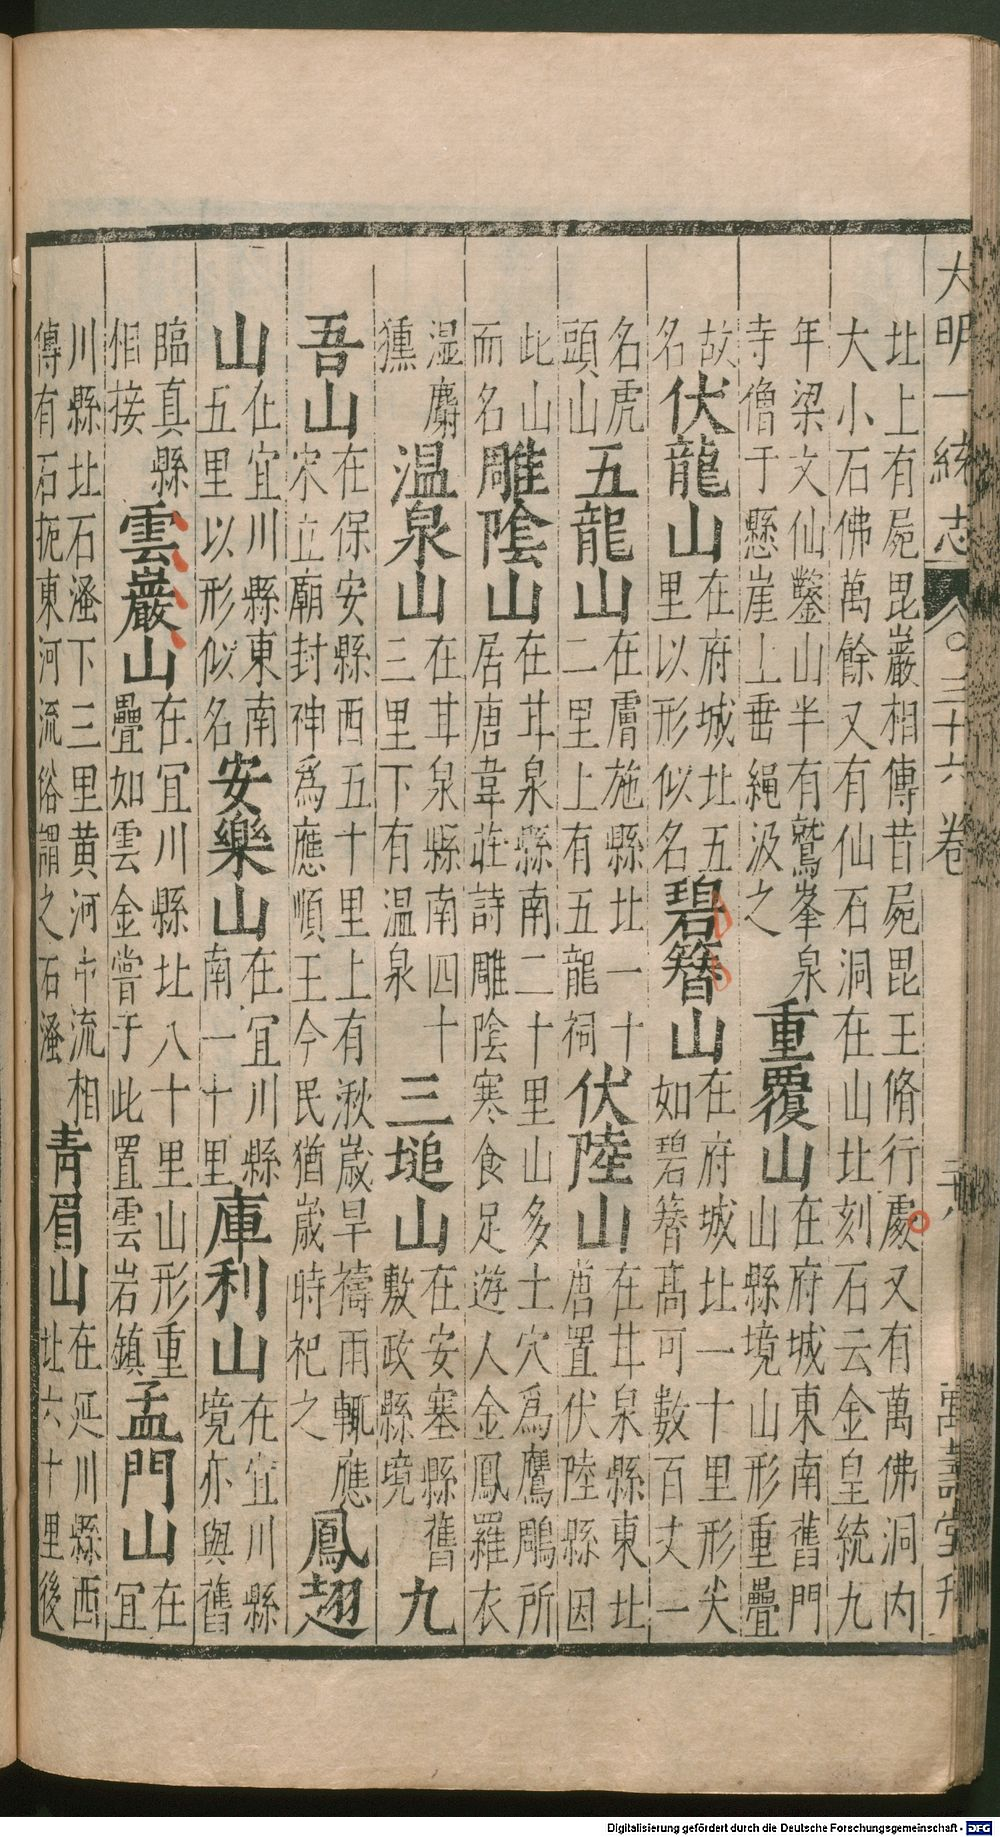 大明一統志 三十六卷 萬壽堂刊
北上有屍毘巖相傳昔屍毘王脩行處又有萬佛洞内
大小石佛萬餘又有仙石洞在山北刻石云金皇統九
年梁文仙鑿山半有鷲峯泉
寺僧于懸崖上垂繩汲之
重覆山
在府城東南舊門
山縣境山形重疊
故
名
伏龍山
在府城北五
里以形似名
碧簪山
在府城北一十里形尖
如碧簪髙可數百丈一
名虎
頭山
五龍山
在膚施縣北一十
二里上有五龍祠
伏陸山
在甘泉縣東北
唐置伏陸縣因
此山
而名
雕陰山
在甘泉縣南二十里山多土穴爲鷹鵰所
居唐韋莊詩雕陰寒食足遊人金鳳羅衣
湿麝
獯
温泉山
在甘泉縣南四十
三里下有温泉
三塠山
在安塞縣舊
敷政縣境
九
吾山
在保安縣西五十里上有湫歲旱禱雨輒應
宋立廟封神爲應順王今民猶歲時祀之
鳳翅
山
在宜川縣東南
五里以形似名
安樂山
在宜川縣
南一十里
庫利山
在宜川縣
境亦與舊
臨真縣
相接
雲巖山
在宜川縣北八十里山形重
疊如雲金嘗于此置雲岩鎮
孟門山
在
宜
川縣北石溞下三里黄河中流相
傳有石扼東河流俗謂之石溞
青眉山
在延川縣西
北六十里後
Digitalisierung gefördert durch die Deutsche Forschungsgemeinschaft - DFG